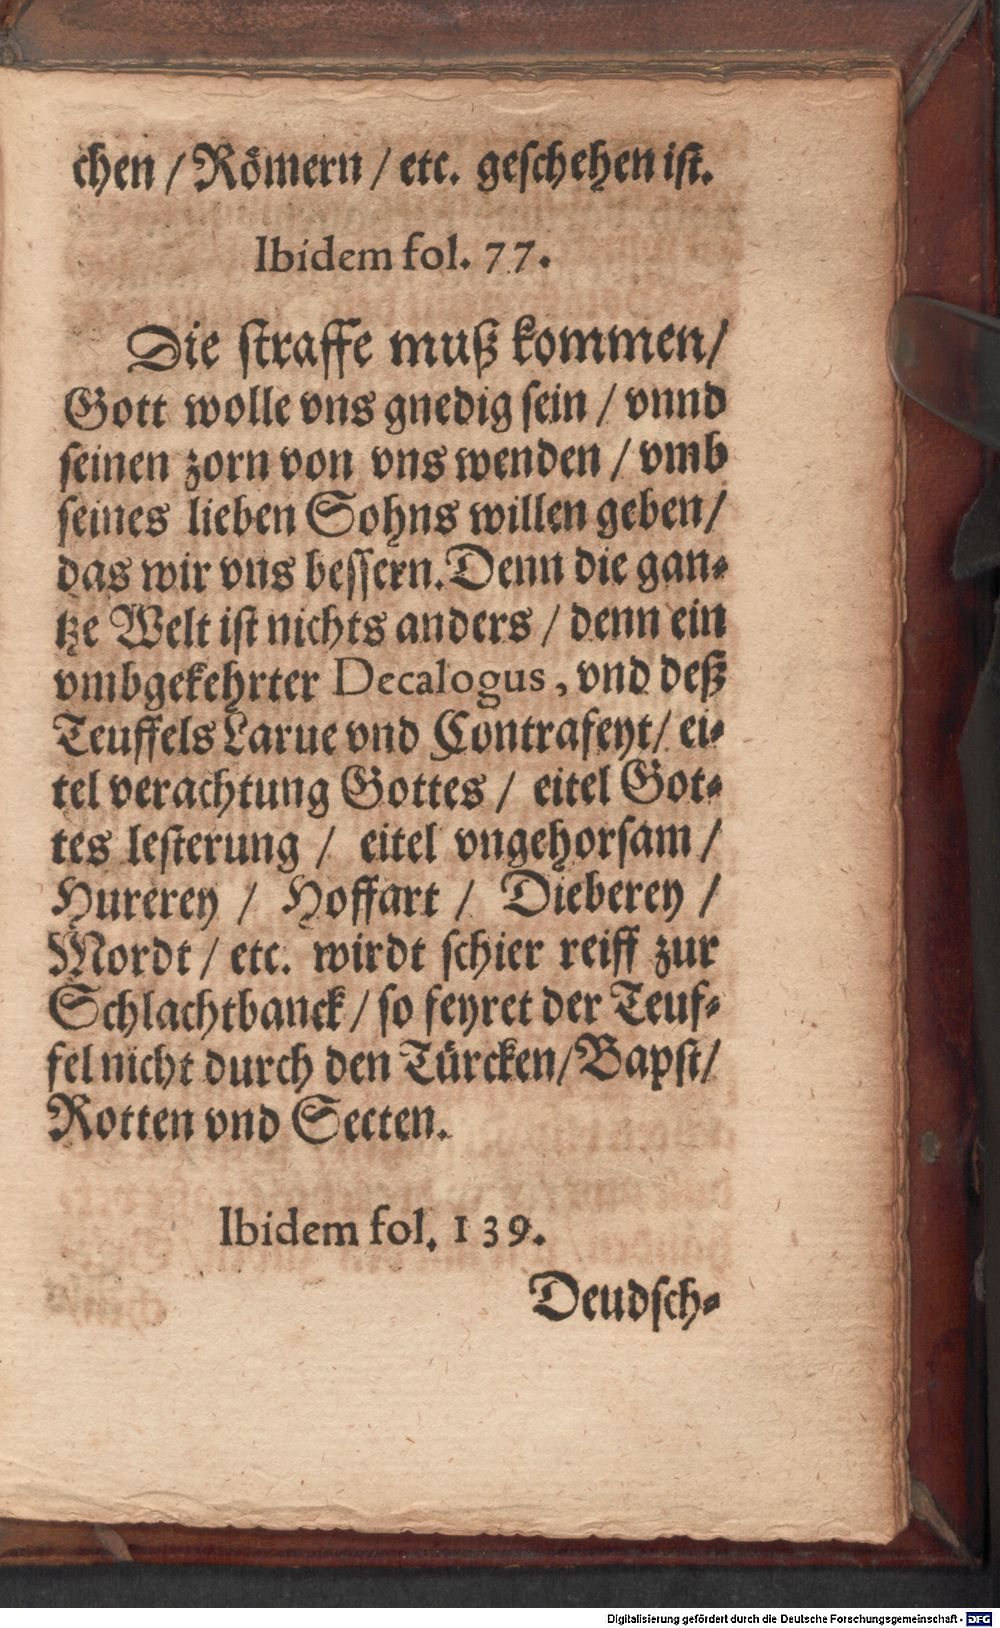 chen / Römern / etc. geschehen ist.
Ibidem fol. 77.
Die straffe muß kommen /
Gott wolle vns gnedig sein / vnnd
seinen zorn von vns wenden / vmb
seines lieben Sohns willen geben /
das wir vns bessern. Denn die gan-
tze Welt ist nichts anders / denn ein
vmbgekehrter Decalogus, vnd deß
Teuffels Larue vnd Contrafeyt / ei-
tel verachtung Gottes / eitel Got-
tes lesterung / eitel vngehorsam /
Hurerey / Hoffart / Dieberey /
Mordt / etc. wirdt schier reiff zur
Schlachtbanck / so feyret der Teuf-
fel nicht durch den Türcken / Bapst /
Rotten vnd Secten.
Ibidem fol. 139.
Deudsch-
Digitalisierung gefördert durch die Deutsche Forschungsgemeinschaft - DFG